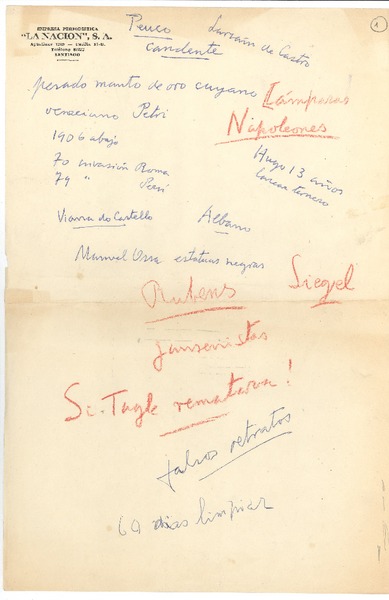 EMPRESA PERIODISTICA
"LA NACION", S.A.
SANTIAGO
1
Peuco Larraín de Castro
candente
pesado manto de oro cuyano Lámparas
veneciano Petri Napoleones
1906 abajo Hugo 13 años
70 invasión Roma
79 " Perú
Viana do Castello Albano
Manuel Ossa estatuas negras
Rubens Siegel
jansenistas
Si. Tagle rematara!
falsos retratos
60 días limpiar